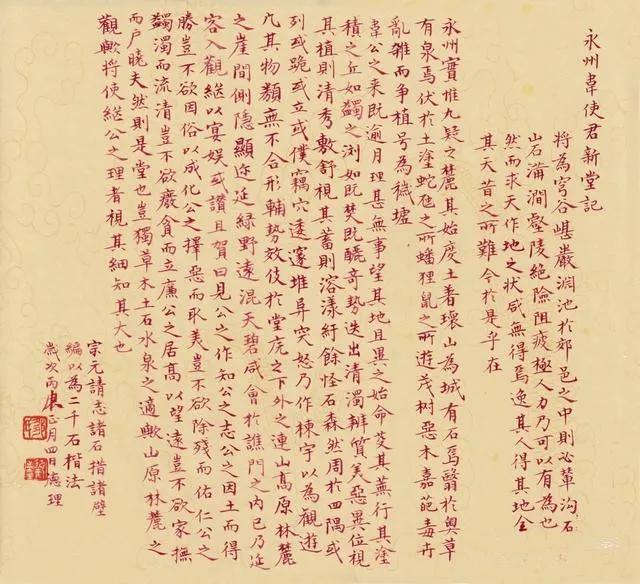 永州韋使君新堂記
將為穹谷嵁巖淵池於郊邑之中則必輦沟石
山石溝澗壑陵絕險阻疲極人力乃可以有為也
然而求天作地之状咸無得焉逸其人得其地全
其天昔之所難今於是乎在
永州實惟九疑之麓其始度土者環山為城有石焉翳於奥草
有泉焉伏於土塗蛇虺之所蟠狸鼠之所遊茂树惡木嘉葩毒卉
亂雜而争植号為穢墟
韋公之来既逾月理甚無事望其地且異之始命芟其蕪行其塗
積之丘如蠲之浏如既焚既釃奇勢迭出清濁辨質美惡異位視
其植則清秀敷舒視其蓄則溶漾紆餘怪石森然周於四隅或
列或跪或立或僕竅穴逶邃堆阜突怒乃作棟宇以為觀遊
凡其物類無不合形輔勢效伎於堂庑之下外之連山高原林麓
之崖間側隱顯迩延緑野遠混天碧咸會於譙門之内已乃延
客入觀継以宴娱或讚且賀曰見公之作知公之志公之因土而得
勝豈不欲因俗以成化公之擇惡而取美豈不欲除殘而佑仁公之
蠲濁而流清豈不欲廢貪而立廉公之居高以望遠豈不欲家撫
而户曉夫然則是堂也豈獨草木土石水泉之適歟山原林麓之
觀歟将使継公之理者視其細知其大也
宗元請志諸石措諸壁
編以為二千石楷法
歲次丙正月四日德理